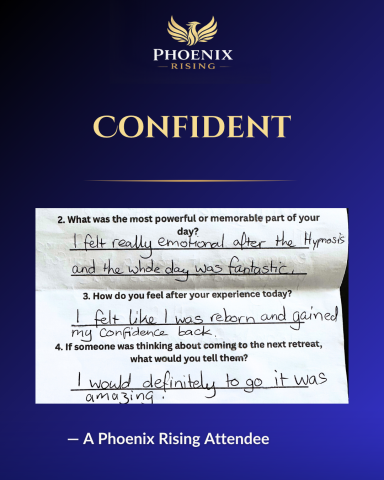 PHOENIX
RISING
CONFIDENT
2. What was the most powerful or memorable part of your
day?
I felt really emotional after the Hypnosis
and the whole day was fantastic.
3. How do you feel after your experience today?
I felt like I was reborn and gained
my confidence back.
4. If someone was thinking about coming to the next retreat,
what would you tell them?
I would definitely to go it was
amazing!
— A Phoenix Rising Attendee